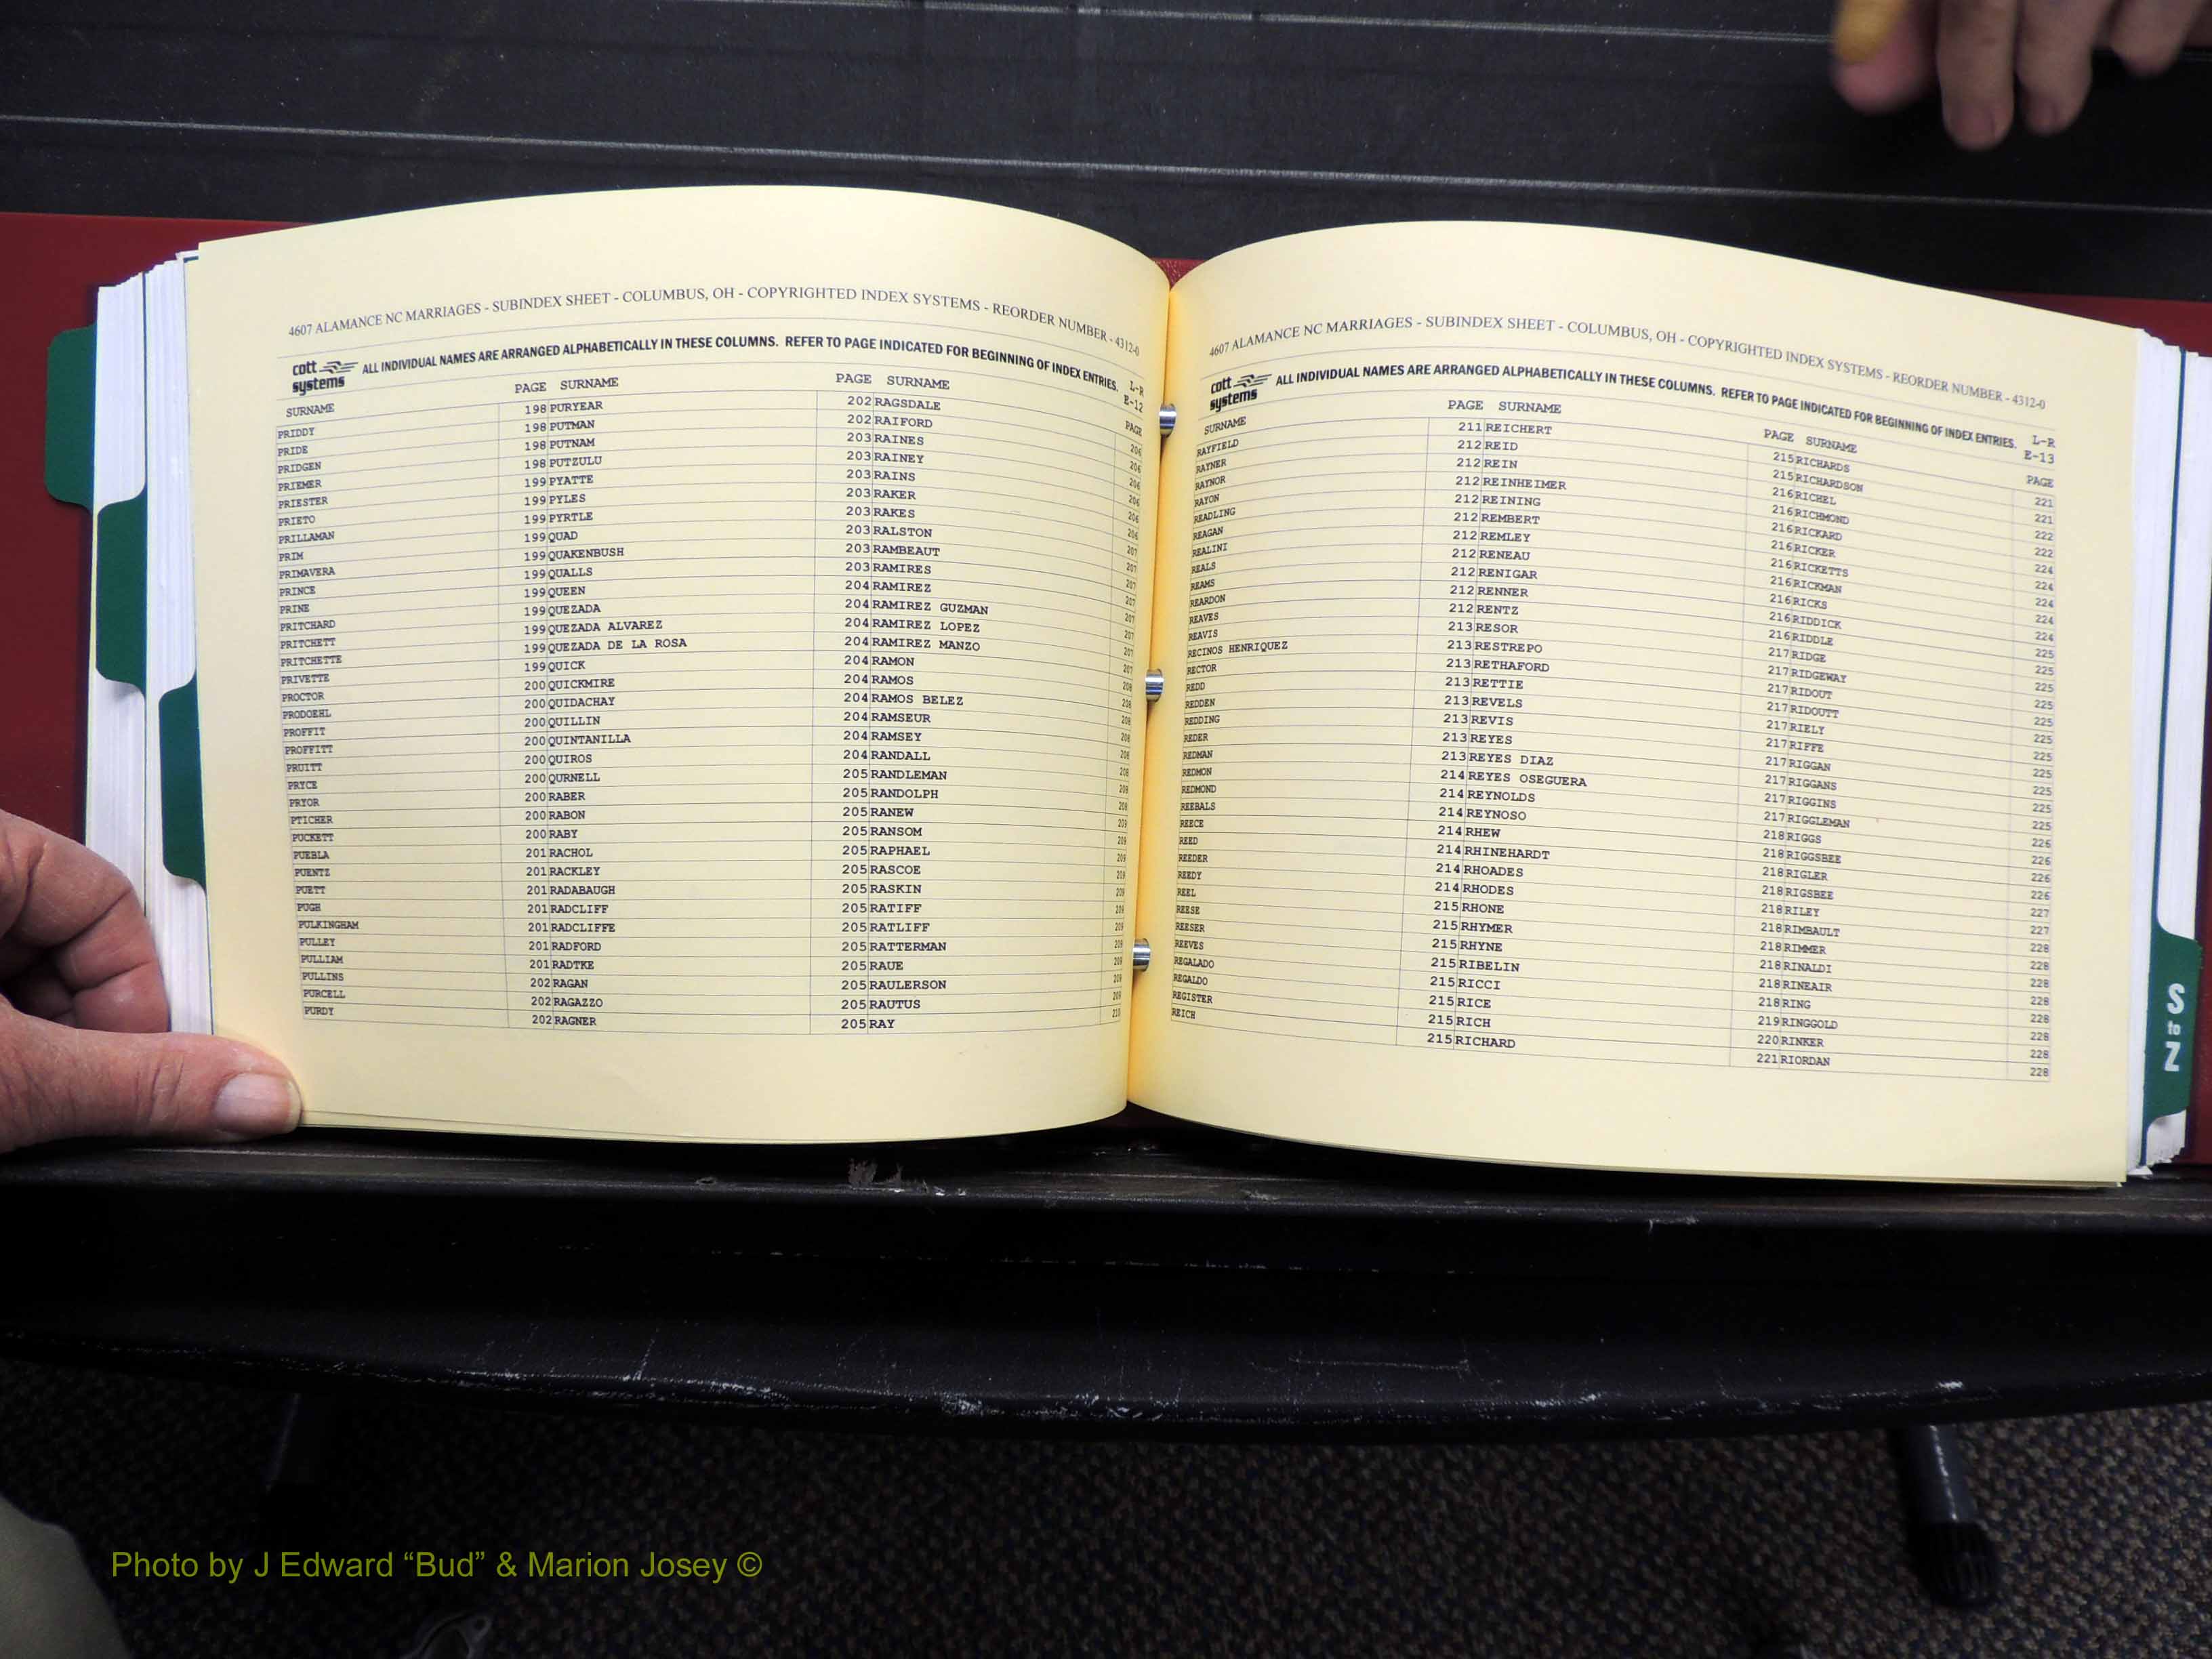 4607 ALAMANCE NC MARRIAGES - SUBINDEX SHEET - COLUMBUS, OH - COPYRIGHTED INDEX SYSTEMS - REORDER NUMBER - 4312-0
cott systems ALL INDIVIDUAL NAMES ARE ARRANGED ALPHABETICALLY IN THESE COLUMNS. REFER TO PAGE INDICATED FOR BEGINNING OF INDEX ENTRIES. L-R E-12
SURNAME PAGE SURNAME PAGE SURNAME PAGE
PRIDDY 198 PURYEAR 202 RAGSDALE 206
PRIDE 198 PUTMAN 202 RAIFORD 206
PRIDGEN 198 PUTNAM 203 RAINES 206
PRIEMER 198 PUTZULU 203 RAINEY 206
PRIESTER 199 PYATTE 203 RAINS 206
PRIETO 199 PYLES 203 RAKER 206
PRILLAMAN 199 PYRTLE 203 RAKES 207
PRIM 199 QUAD 203 RALSTON 207
PRIMAVERA 199 QUAKENBUSH 203 RAMBEAUT 207
PRINCE 199 QUALLS 203 RAMIRES 207
PRINE 199 QUEEN 204 RAMIREZ 207
PRITCHARD 199 QUEZADA 204 RAMIREZ GUZMAN 207
PRITCHETT 199 QUEZADA ALVAREZ 204 RAMIREZ LOPEZ 207
PRITCHETTE 199 QUEZADA DE LA ROSA 204 RAMIREZ MANZO 207
PRIVETTE 199 QUICK 204 RAMON 208
PROCTOR 200 QUICKMIRE 204 RAMOS 208
PRODOEHL 200 QUIDACHAY 204 RAMOS BELEZ 208
PROFFIT 200 QUILLIN 204 RAMSEUR 208
PROFFITT 200 QUINTANILLA 204 RAMSEY 208
PRUITT 200 QUIROS 204 RANDALL 208
PRYCE 200 QURNELL 205 RANDLEMAN 209
PRYOR 200 RABER 205 RANDOLPH 209
PTICHER 200 RABON 205 RANEW 209
PUCKETT 200 RABY 205 RANSOM 209
PUEBLA 201 RACHOL 205 RAPHAEL 209
PUENTZ 201 RACKLEY 205 RASCOE 209
PUETT 201 RADABAUGH 205 RASKIN 209
PUGH 201 RADCLIFF 205 RATIFF 209
PULKINGHAM 201 RADCLIFFE 205 RATLIFF 209
PULLEY 201 RADFORD 205 RATTERMAN 209
PULLIAM 201 RADTKE 205 RAUE 209
PULLINS 202 RAGAN 205 RAULERSON 209
PURCELL 202 RAGAZZO 205 RAUTUS 209
PURDY 202 RAGNER 205 RAY 210
4607 ALAMANCE NC MARRIAGES - SUBINDEX SHEET - COLUMBUS, OH - COPYRIGHTED INDEX SYSTEMS - REORDER NUMBER - 4312-0
cott systems ALL INDIVIDUAL NAMES ARE ARRANGED ALPHABETICALLY IN THESE COLUMNS. REFER TO PAGE INDICATED FOR BEGINNING OF INDEX ENTRIES. L-R E-13
SURNAME PAGE SURNAME PAGE SURNAME PAGE
RAYFIELD 211 REICHERT 215 RICHARDS 221
RAYNER 212 REID 215 RICHARDSON 221
RAYNOR 212 REIN 216 RICHEL 222
RAYON 212 REINHEIMER 216 RICHMOND 222
READLING 212 REINING 216 RICKARD 224
REAGAN 212 REMBERT 216 RICKER 224
REALINI 212 REMLEY 216 RICKETTS 224
REALS 212 RENEAU 216 RICKMAN 224
REAMS 212 RENIGAR 216 RICKS 225
REARDON 212 RENNER 216 RIDDICK 225
REAVES 212 RENTZ 216 RIDDLE 225
REAVIS 213 RESOR 217 RIDGE 225
RECINOS HENRIQUEZ 213 RESTREPO 217 RIDGEWAY 225
RECTOR 213 RETHAFORD 217 RIDOUT 225
REDD 213 RETTIE 217 RIDOUTT 225
REDDEN 213 REVELS 217 RIELY 225
REDDING 213 REVIS 217 RIFFE 225
REDER 213 REYES 217 RIGGAN 225
REDMAN 213 REYES DIAZ 217 RIGGANS 225
REDMON 214 REYES OSEGUERA 217 RIGGINS 225
REDMOND 214 REYNOLDS 217 RIGGLEMAN 226
REEBALS 214 REYNOSO 218 RIGGS 226
REECE 214 RHEW 218 RIGGSBEE 226
REED 214 RHINEHARDT 218 RIGLER 226
REEDER 214 RHOADES 218 RIGSBEE 227
REEDY 214 RHODES 218 RILEY 227
REEL 215 RHONE 218 RIMBAULT 228
REESE 215 RHYMER 218 RIMMER 228
REESER 215 RHYNE 218 RINALDI 228
REEVES 215 RIBELIN 218 RINEAIR 228
REGALADO 215 RICCI 218 RING 228
REGALDO 215 RICE 219 RINGGOLD 228
REGISTER 215 RICH 220 RINKER 228
REICH 215 RICHARD 221 RIORDAN 228
S to Z
Photo by J Edward “Bud” & Marion Josey ©